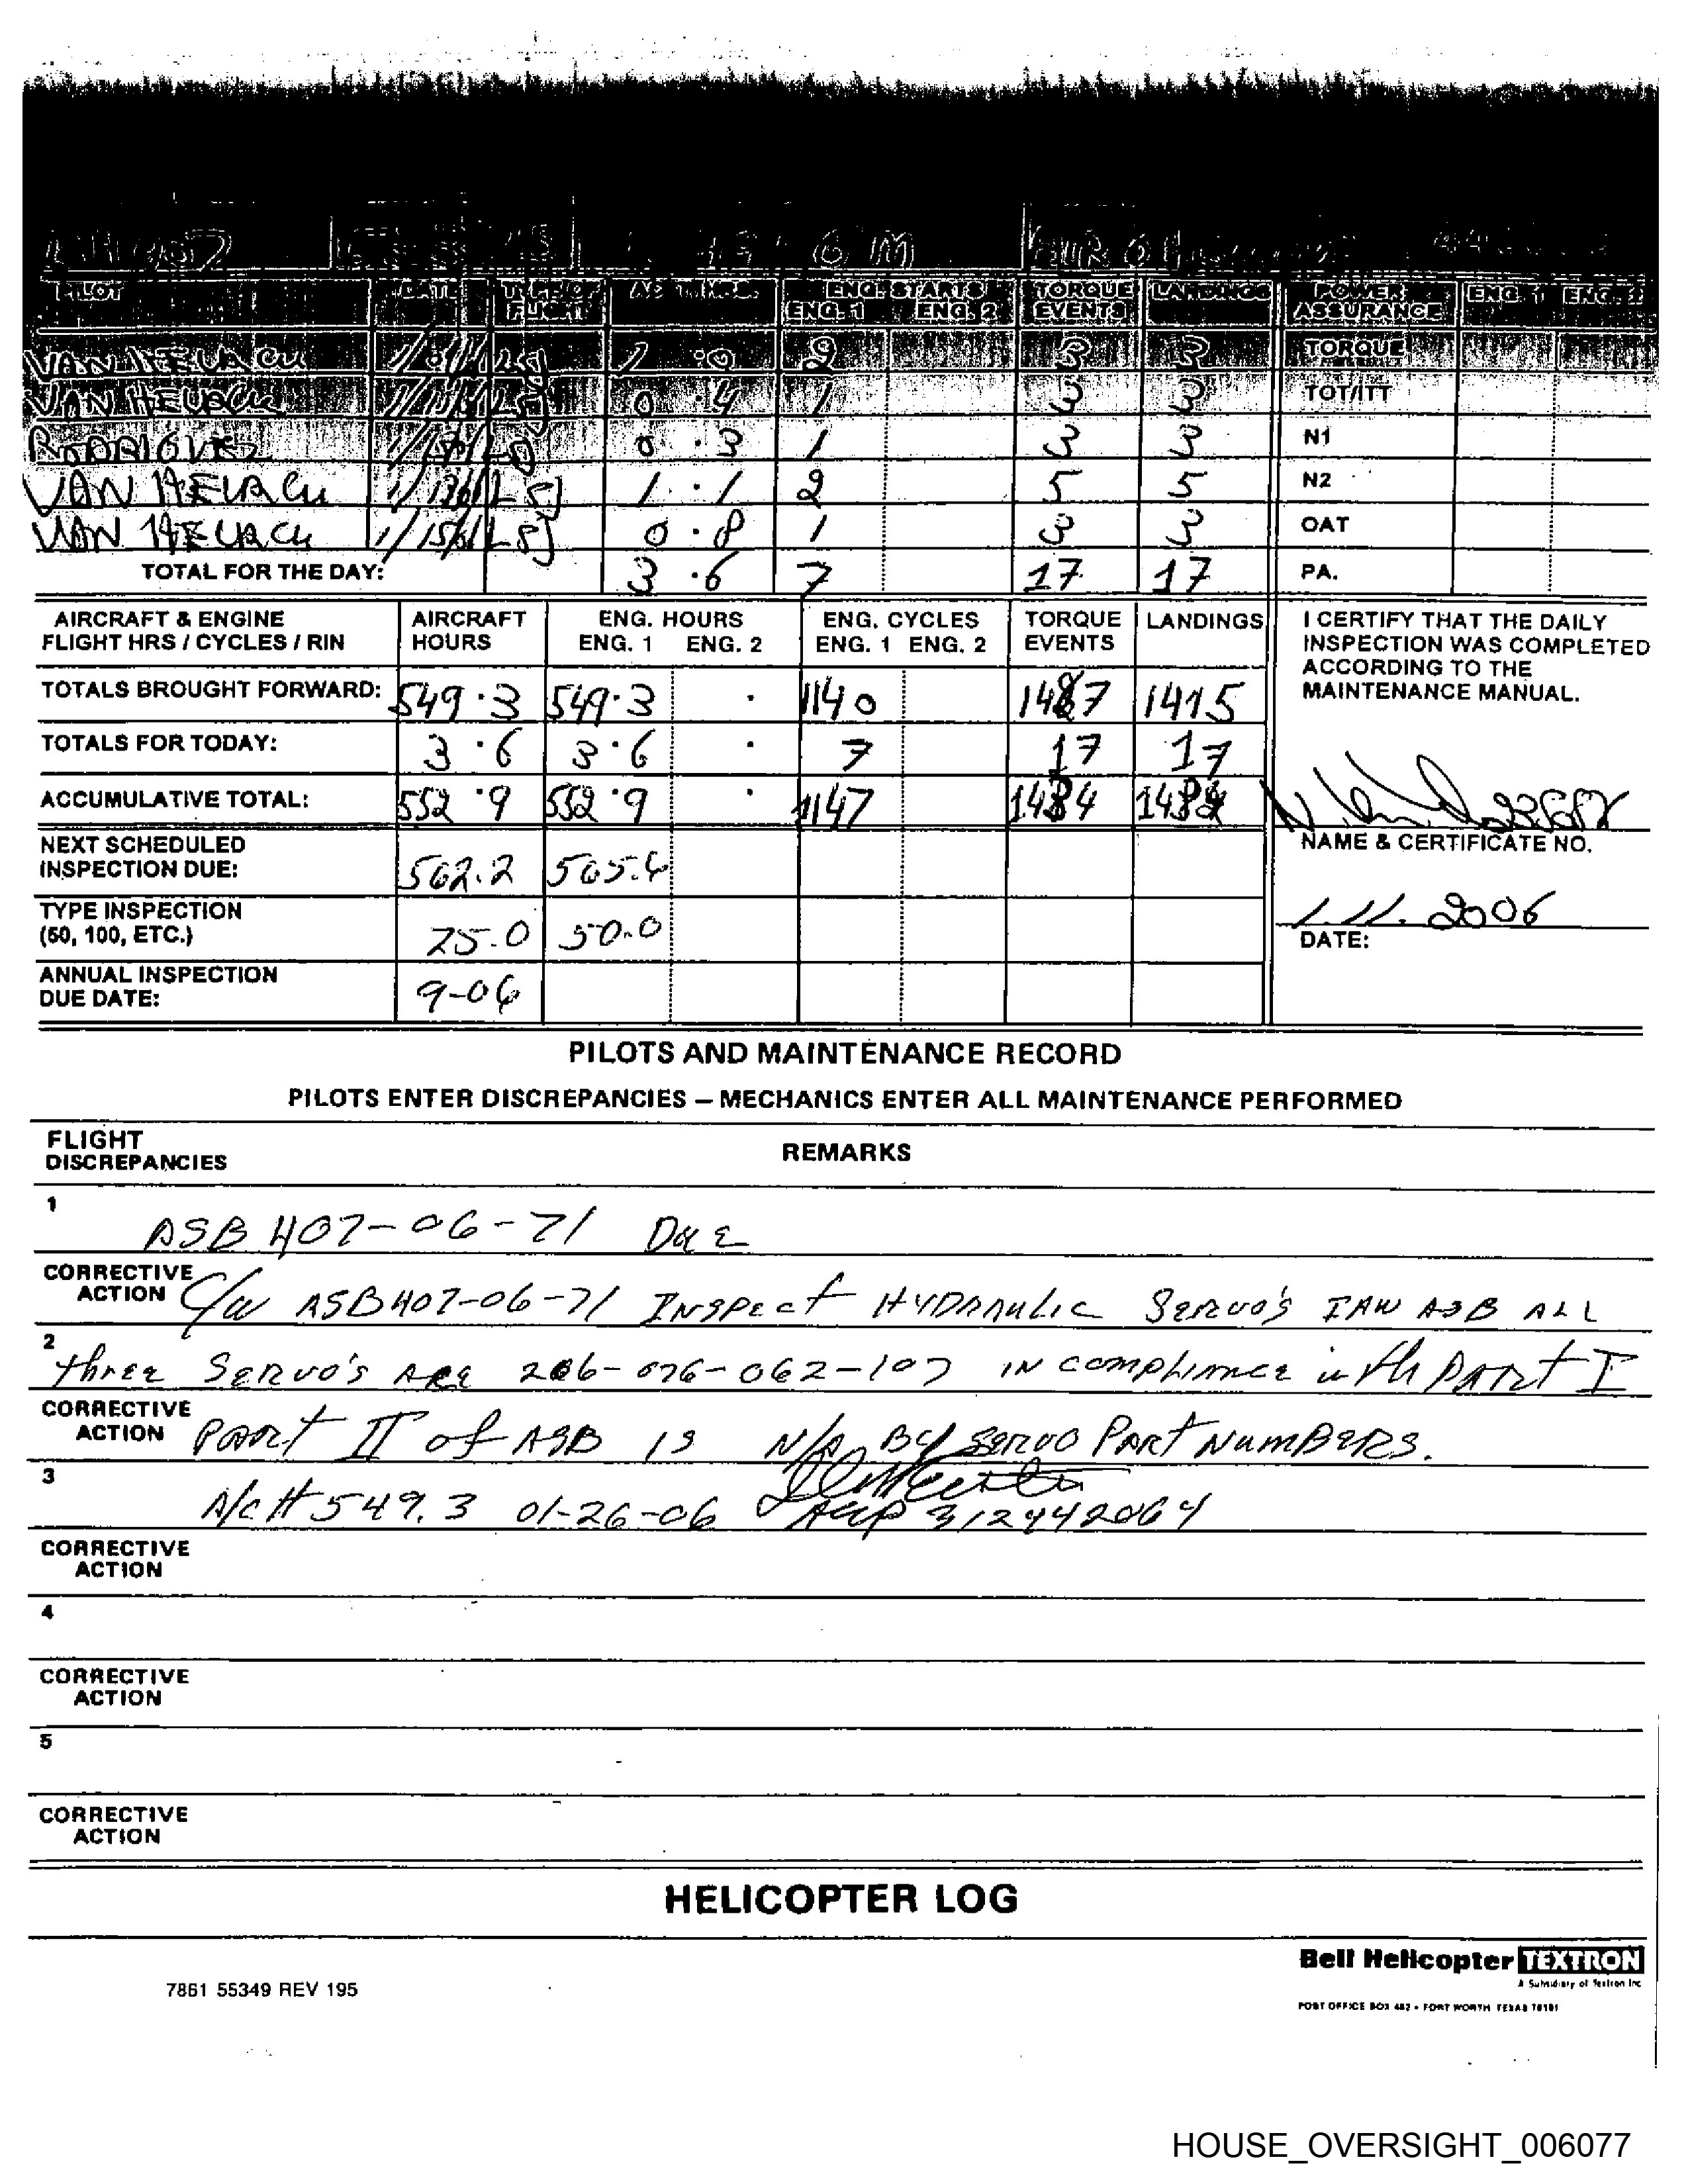 PILOT DATE TYPE OF FLIGHT ENG. STARTS ENG. 1 ENG. 2 TORQUE EVENTS LANDINGS POWER ASSURANCE ENG. 1 ENG. 2
1 .0 2 3 3 TORQUE
0 .4 1 3 3 TOT/ITT
0 .3 1 3 3 N1
1 .1 2 5 5 N2
0 .8 1 3 3 OAT
TOTAL FOR THE DAY: 3 .6 7 17 17 PA.
AIRCRAFT & ENGINE FLIGHT HRS / CYCLES / RIN AIRCRAFT HOURS ENG. HOURS ENG. 1 ENG. 2 ENG. CYCLES ENG. 1 ENG. 2 TORQUE EVENTS LANDINGS
I CERTIFY THAT THE DAILY
INSPECTION WAS COMPLETED
ACCORDING TO THE
MAINTENANCE MANUAL.
TOTALS BROUGHT FORWARD: 549.3 549.3 . 1140 1415
TOTALS FOR TODAY: 3.6 3.6 . 7 17 17
ACCUMULATIVE TOTAL: 552.9 552.9 . 1147
NAME & CERTIFICATE NO.
NEXT SCHEDULED
INSPECTION DUE: 562.2
TYPE INSPECTION
(50, 100, ETC.) 25.0 50.0
1.11.2006
DATE:
ANNUAL INSPECTION
DUE DATE: 9-06
PILOTS AND MAINTENANCE RECORD
PILOTS ENTER DISCREPANCIES – MECHANICS ENTER ALL MAINTENANCE PERFORMED
FLIGHT
DISCREPANCIES REMARKS
1 ASB 407-06-71 Due
CORRECTIVE
ACTION C/W ASB 407-06-71 INSPECT HYDRAULIC SERVO'S IAW ASB ALL
2 three SERVO'S ARE 206-076-062-107 IN compliance with PART I
CORRECTIVE
ACTION PART II of ASB IS N/A By SERVO PART NUMBERS.
3 A/C H 549.3 01-26-06 A&P 312442064
CORRECTIVE
ACTION
4
CORRECTIVE
ACTION
5
CORRECTIVE
ACTION
HELICOPTER LOG
Bell Helicopter TEXTRON
A Subsidiary of Textron Inc
7861 55349 REV 195
POST OFFICE BOX 482 • FORT WORTH TEXAS 76101
HOUSE_OVERSIGHT_006077